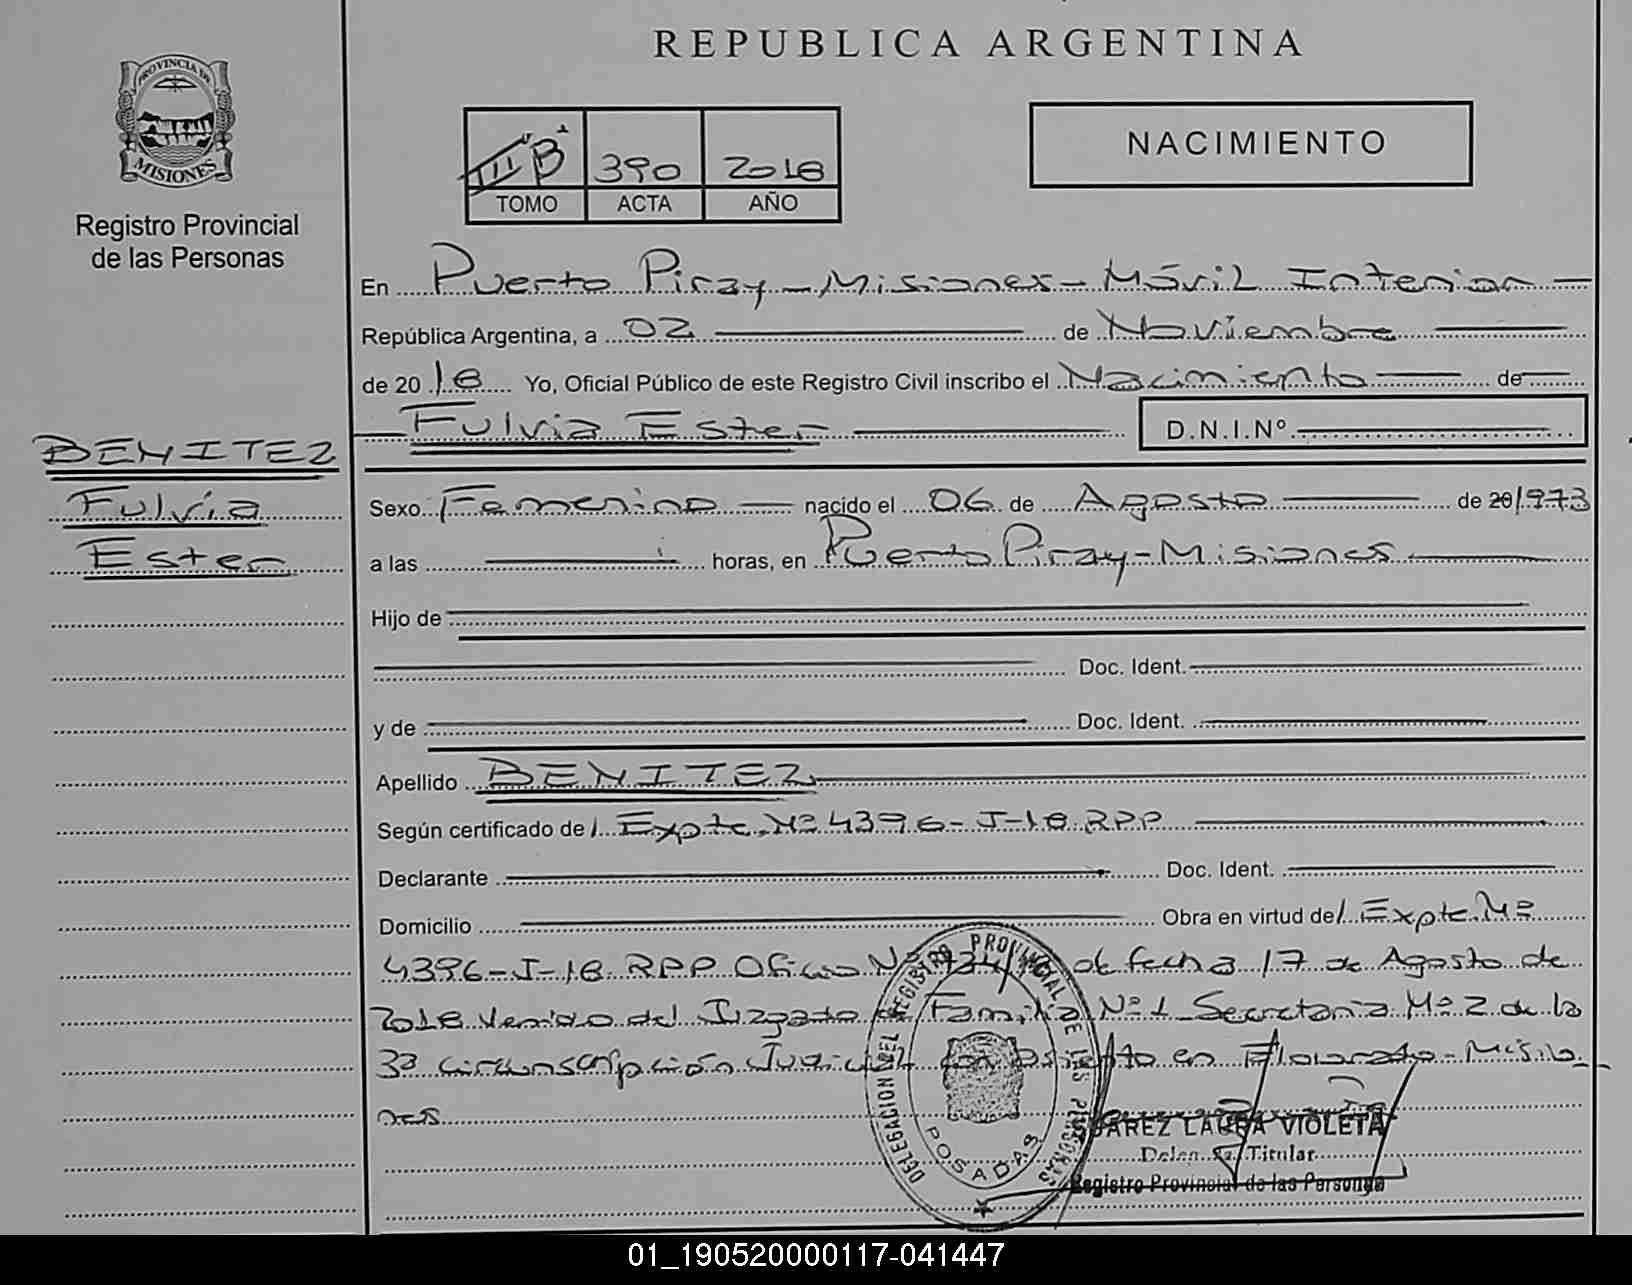 REPUBLICA ARGENTINA
PROVINCIA DE
MISIONES
Registro Provincial
de las Personas
III "B" 390 2018
TOMO ACTA AÑO
NACIMIENTO
En Puerto Piray - Misiones - Móvil Interior
República Argentina, a 02 de Noviembre
de 2018 Yo, Oficial Público de este Registro Civil inscribo el Nacimiento de
Fulvia Ester D.N.I.Nº
BENITEZ
Fulvia
Ester
Sexo Femenino nacido el 06 de Agosto de 20 1973
a las horas, en Puerto Piray - Misiones
Hijo de
Doc. Ident.
y de Doc. Ident.
Apellido BENITEZ
Según certificado de / Expte. Nº 4396-J-18 RPP
Declarante Doc. Ident.
Domicilio Obra en virtud de / Expte Nº
4396-J-18 RPP Oficio Nº de fecha 17 de Agosto de
2018 venido del Juzgado de Familia Nº 1 Secretaria Nº 2 de la
3ª circunscripción Judicial con asiento en Eldorado - Misio
nes
DELEGACION DEL REGISTRO PROVINCIAL DE LAS PERSONAS
POSADAS
SUAREZ LARREA VIOLETA
Titular
Registro Provincial de las Personas
01_190520000117-041447